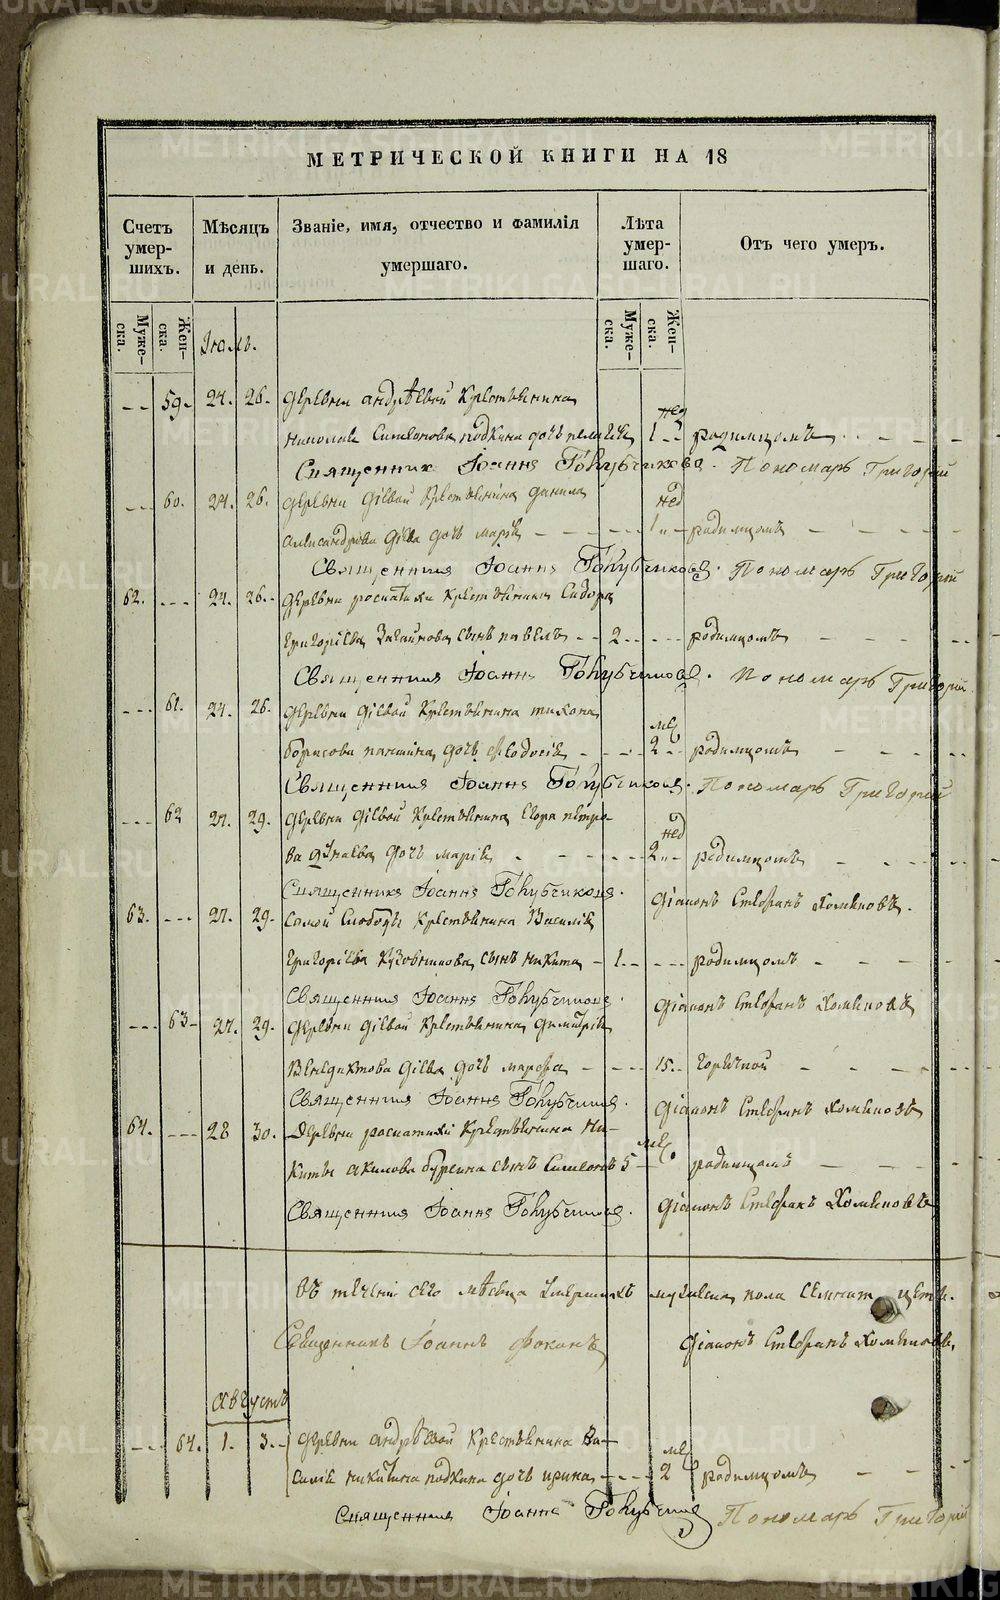 МЕТРИЧЕСКОЙ КНИГИ НА 18
Счетъ умер-шихъ. Мѣсяцъ и день. Званіе, имя, отчество и фамилія умершаго. Лѣта умер-шаго. Отъ чего умеръ.
Муже-ска. Жен-ска. Муже-ска. Жен-ска.
Іюль.
59. 24. 26. Деревни Андрѣевой Крестьянина
Николая Симеонова дочь Пелагія 1 нед родимцомъ
Священникъ Іоаннъ Голубчиковъ. Пономарь Григорій
60. 24. 26. Деревни Гіевой Крестьянина Данила
Александрова Гіева дочь Марія 1 нед родимцомъ
Священникъ Іоаннъ Голубчиковъ. Пономарь Григорій
62. 24. 26. Деревни Крестьянина Сидора
Григоріева сынъ Павелъ 2 родимцомъ
Священникъ Іоаннъ Голубчиковъ. Пономарь Григорій
61. 24. 26. Деревни Гіевой Крестьянина Тихона
Борисова дочь Ѳеодосія 2 ме родимцомъ
Священникъ Іоаннъ Голубчиковъ. Пономарь Григорій
62 27. 29. Деревни Гіевой Крестьянина Егора Петро-
ва дочь Марія 2 нед родимцомъ
Священникъ Іоаннъ Голубчиковъ. Діаконъ Стефанъ Хомяковъ.
63. 27. 29. Самой Слободы Крестьянина Василія
Григоріева сынъ Никита 1 родимцомъ
Священникъ Іоаннъ Голубчиковъ. Діаконъ Стефанъ Хомяковъ
63 27. 29. Деревни Гіевой Крестьянина Димитрія
Венедиктова Гіева дочь Марѳа 15. горячкой
Священникъ Іоаннъ Голубчиковъ. Діаконъ Стефанъ Хомяковъ
64. 28 30. Деревни Крестьянина Ни-
киты Акилова сынъ Симеонъ 5 ме родимцомъ
Священникъ Іоаннъ Голубчиковъ. Діаконъ Стефанъ Хомяковъ
Въ теченіи сего мѣсяца умершихъ мужеска пола
Священникъ Іоаннъ Діаконъ Стефанъ Хомяковъ.
Августъ
64. 1. 3. Деревни Андрѣевой Крестьянина Ва-
силія Никитина дочь Ирина 2 ме родимцомъ
Священникъ Іоаннъ Голубчиковъ Пономарь Григорій
METRIKI.GASO-URAL.RU